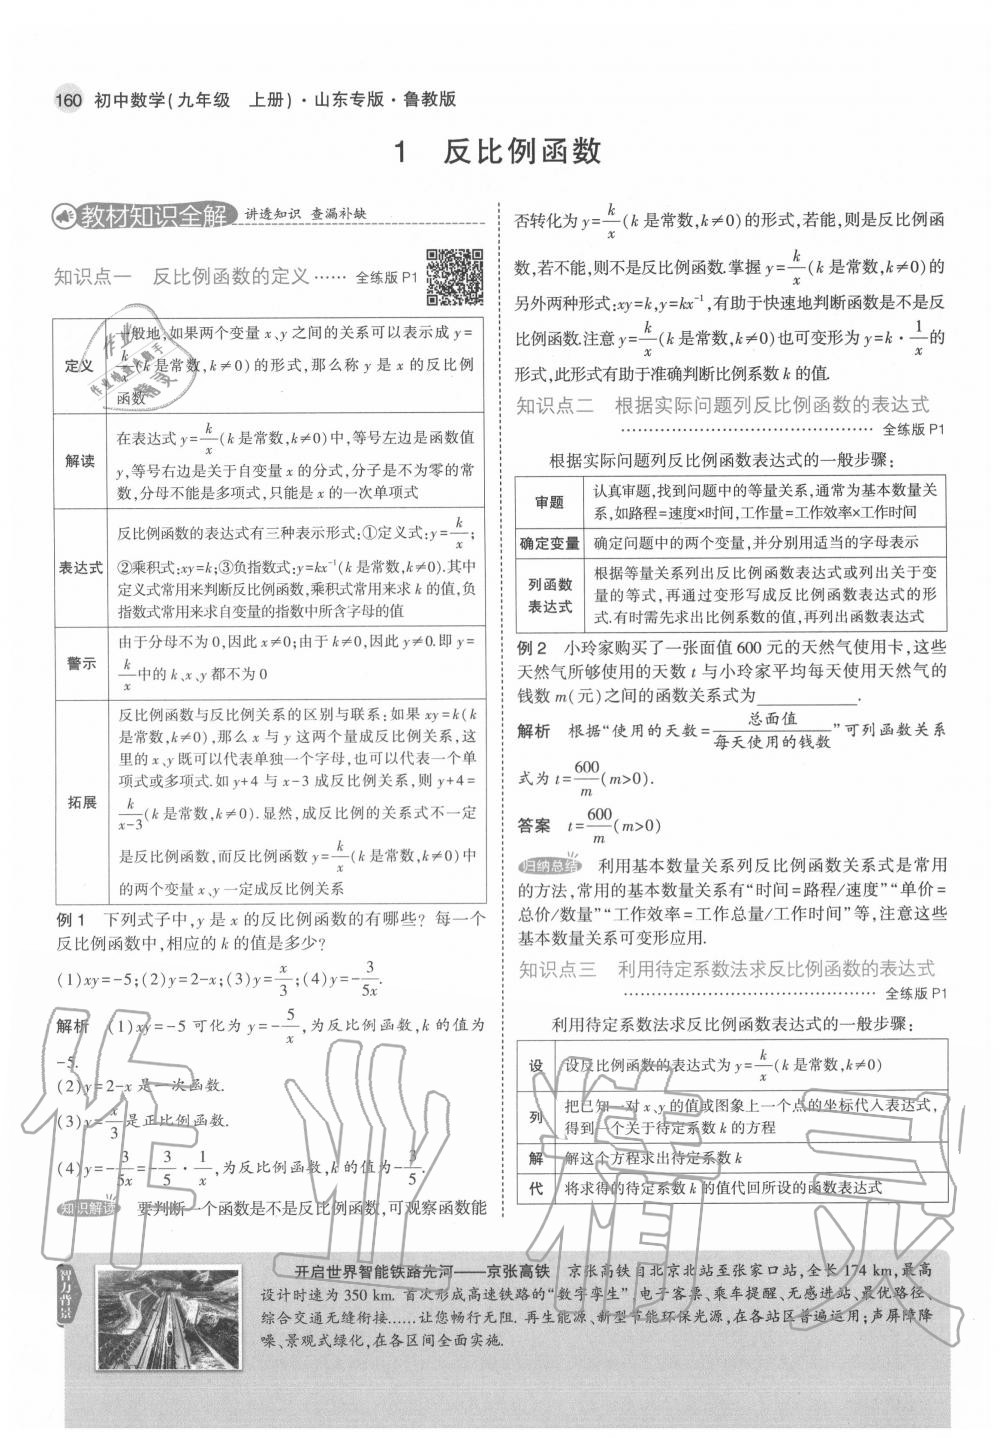 160 初中数学(九年级 上册)·山东专版·鲁教版
1 反比例函数
教材知识全解 讲透知识 查漏补缺
知识点一 反比例函数的定义…… 全练版P1
定义
一般地,如果两个变量x、y之间的关系可以表示成y=
k/x(k是常数,k≠0)的形式,那么称y是x的反比例
函数
解读
在表达式y=k/x(k是常数,k≠0)中,等号左边是函数值
y,等号右边是关于自变量x的分式,分子是不为零的常
数,分母不能是多项式,只能是x的一次单项式
表达式
反比例函数的表达式有三种表示形式:①定义式:y=k/x;
②乘积式:xy=k;③负指数式:y=kx⁻¹(k是常数,k≠0).其中
定义式常用来判断反比例函数,乘积式常用来求k的值,负
指数式常用来求自变量的指数中所含字母的值
警示
由于分母不为0,因此x≠0;由于k≠0,因此y≠0.即y=
k/x中的k、x、y都不为0
拓展
反比例函数与反比例关系的区别与联系:如果xy=k(k
是常数,k≠0),那么x与y这两个量成反比例关系,这
里的x、y既可以代表单独一个字母,也可以代表一个单
项式或多项式.如y+4与x-3成反比例关系,则y+4=
k/(x-3)(k是常数,k≠0).显然,成反比例的关系式不一定
是反比例函数,而反比例函数y=k/x(k是常数,k≠0)中
的两个变量x、y一定成反比例关系
例1 下列式子中,y是x的反比例函数的有哪些?每一个
反比例函数中,相应的k的值是多少?
(1)xy=-5;(2)y=2-x;(3)y=x/3;(4)y=-3/5x.
解析 (1)xy=-5可化为y=-5/x,为反比例函数,k的值为
-5.
(2)y=2-x是一次函数.
(3)y=x/3是正比例函数.
(4)y=-3/5x=-3/5·1/x,为反比例函数,k的值为-3/5.
知识解读 要判断一个函数是不是反比例函数,可观察函数能
否转化为y=k/x(k是常数,k≠0)的形式,若能,则是反比例函
数,若不能,则不是反比例函数.掌握y=k/x(k是常数,k≠0)的
另外两种形式:xy=k,y=kx⁻¹,有助于快速地判断函数是不是反
比例函数.注意y=k/x(k是常数,k≠0)也可变形为y=k·1/x的
形式,此形式有助于准确判断比例系数k的值.
知识点二 根据实际问题列反比例函数的表达式
…… 全练版P1
根据实际问题列反比例函数表达式的一般步骤:
审题
认真审题,找到问题中的等量关系,通常为基本数量关
系,如路程=速度×时间,工作量=工作效率×工作时间
确定变量 确定问题中的两个变量,并分别用适当的字母表示
列函数
表达式
根据等量关系列出反比例函数表达式或列出关于变
量的等式,再通过变形写成反比例函数表达式的形
式.有时需先求出比例系数的值,再列出函数表达式
例2 小玲家购买了一张面值600元的天然气使用卡,这些
天然气所够使用的天数t与小玲家平均每天使用天然气的
钱数m(元)之间的函数关系式为__________.
解析 根据“使用的天数=总面值/每天使用的钱数”可列函数关系
式为t=600/m(m>0).
答案 t=600/m(m>0)
归纳总结 利用基本数量关系列反比例函数关系式是常用
的方法,常用的基本数量关系有“时间=路程/速度”“单价=
总价/数量”“工作效率=工作总量/工作时间”等,注意这些
基本数量关系可变形应用.
知识点三 利用待定系数法求反比例函数的表达式
…… 全练版P1
利用待定系数法求反比例函数表达式的一般步骤:
设 设反比例函数的表达式为y=k/x(k是常数,k≠0)
列
把已知一对x、y的值或图象上一个点的坐标代入表达式,
得到一个关于待定系数k的方程
解 解这个方程求出待定系数k
代 将求得的待定系数k的值代回所设的函数表达式
作业精灵
智力背景
开启世界智能铁路先河——京张高铁 京张高铁自北京北站至张家口站,全长174 km,最高
设计时速为350 km.首次形成高速铁路的“数字孪生”电子客票、乘车提醒、无感进站、最优路径、
综合交通无缝衔接……让您畅行无阻.再生能源、新型节能环保光源,在各站区普遍运用;声屏障降
噪、景观式绿化,在各区间全面实施.